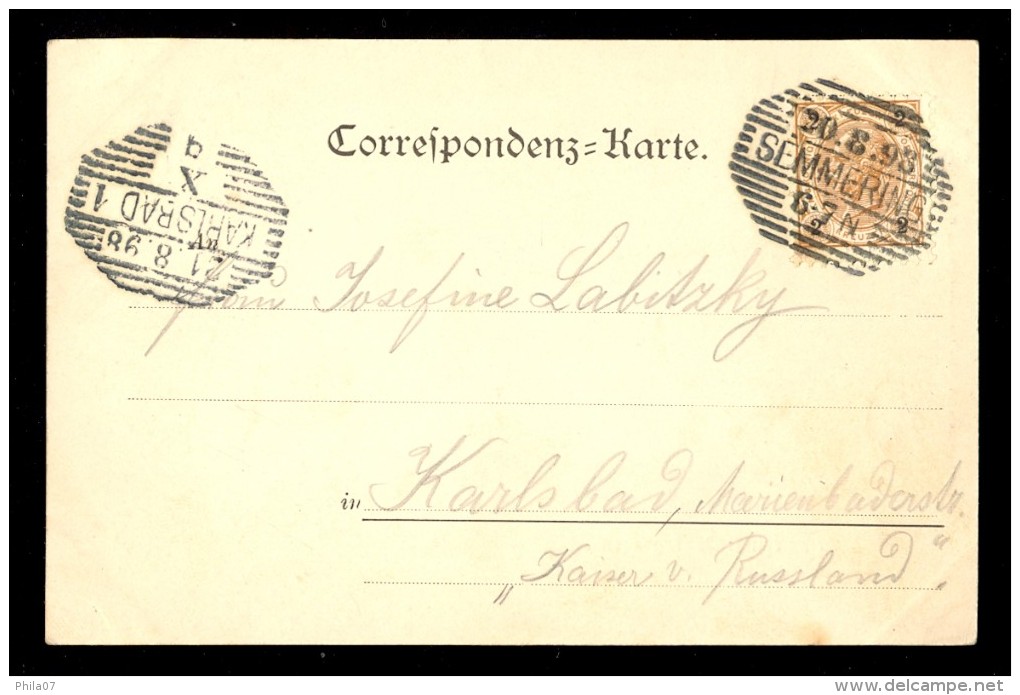 Correspondenz=Karte.
2
20.8.98
SEMMERING
6-7N
2 2
q
X
KARLSBAD 1
21.8.98
Josefine Labitzky
in Karlsbad, Marienbaderstr.
"Kaiser v. Russland"
Phila07
delcampe.net